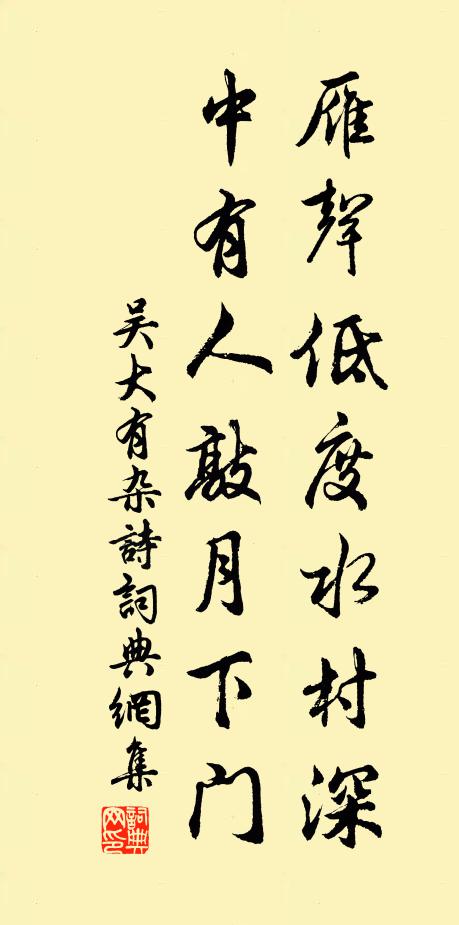 雁聲低度水村深
中有人敲月下門
吴大有杂詩詞典網集
詞典網印